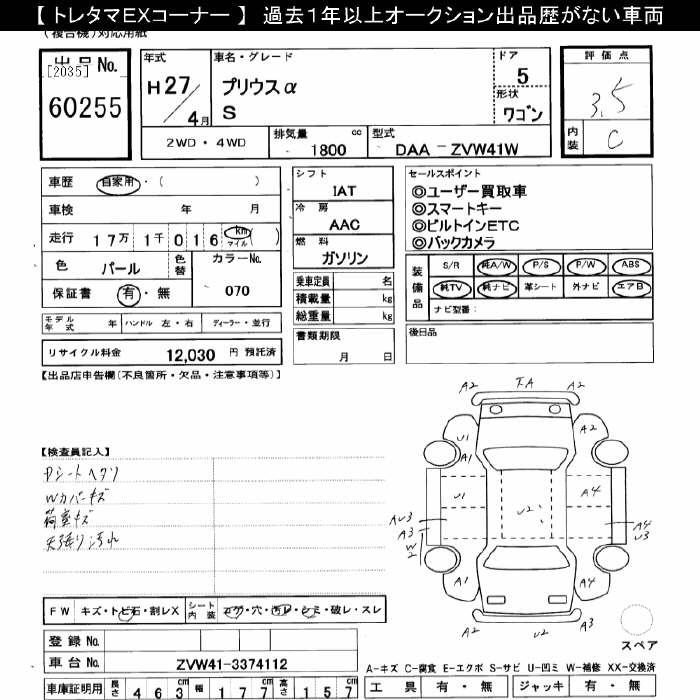 【 トレタマEXコーナー 】 過去１年以上オークション出品歴がない車両
(複合機)対応用紙
出品No.
[2035]
60255
年式
H27/4月
車名・グレード
プリウスα
S
ドア
5
形状
ワゴン
2WD・4WD
排気量 cc
1800
型式
DAA - ZVW41W
評価点
3.5
内装
C
車歴 自家用・( )
車検 年 月
走行 17万 1千 016 km マイル ( )
色 パール 色替 カラーNo.
保証書 有・無 070
モデル年式 年 ハンドル 左・右 ディーラー・並行
リサイクル料金 12,030 円 預託済
シフト
IAT
冷房
AAC
燃料
ガソリン
乗車定員 名
積載量 kg
総重量 kg
書類期限
月 日
セールスポイント
◎ユーザー買取車
◎スマートキー
◎ビルトインETC
◎バックカメラ
装備品
S/R 純A/W P/S P/W ABS
純TV 純ナビ 革シート 外ナビ エアB
ナビ型番:
後日品
【出品店申告欄(不良箇所・欠品・注意事項等)】
【検査員記入】
Dシートヘタリ
Wカバーキズ
荷室キズ
天張り汚れ
A2 A2
A2
U1
A1 A2
U1 A4
U2
AU3
A3
W2
A4
U3
A1 A1
A3
A2 U2
FW キズ・トビ石・割レX シート内装 コゲ・穴・汚レ・シミ・破レ・スレ
登録No.
車台No. ZVW41-3374112
車庫証明用 長さ 463cm 幅 177cm 高さ 157cm
スペア
A-キズ C-腐食 E-エクボ S-サビ U-凹ミ W-補修 XX-交換済
工具 有・無 ジャッキ 有・無